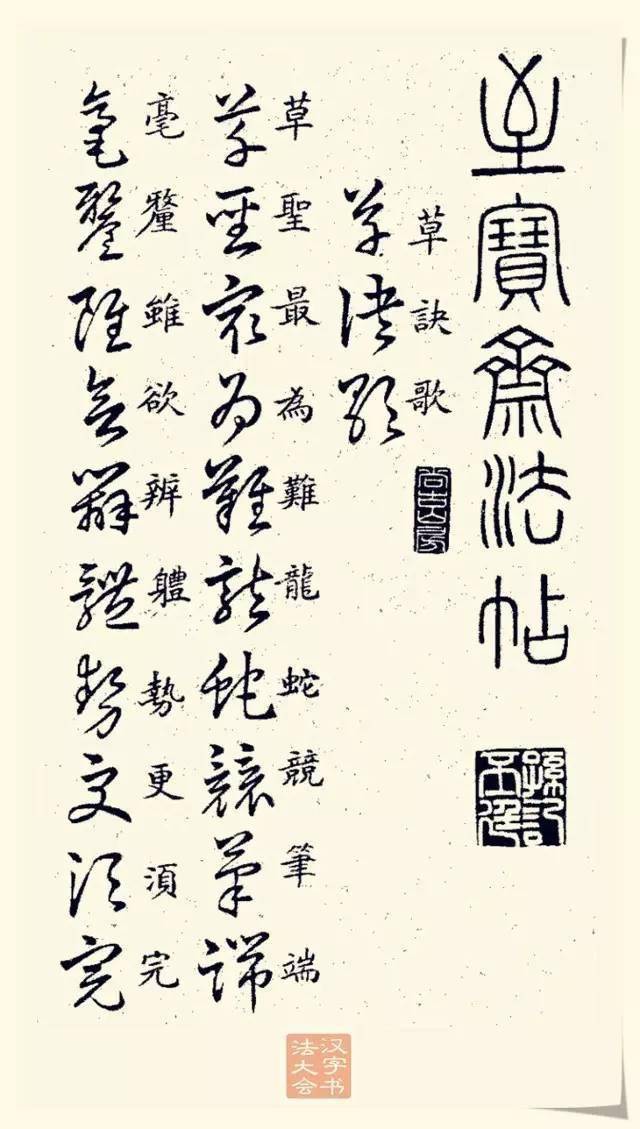 至寶齋法帖
草訣歌
尚古山房
草訣歌
草聖最為難龍蛇競筆端
草聖最為難龍蛇競筆端
毫釐雖欲辨體勢更湏完
毫釐雖欲辨體勢更湏完
汉字书
法大会